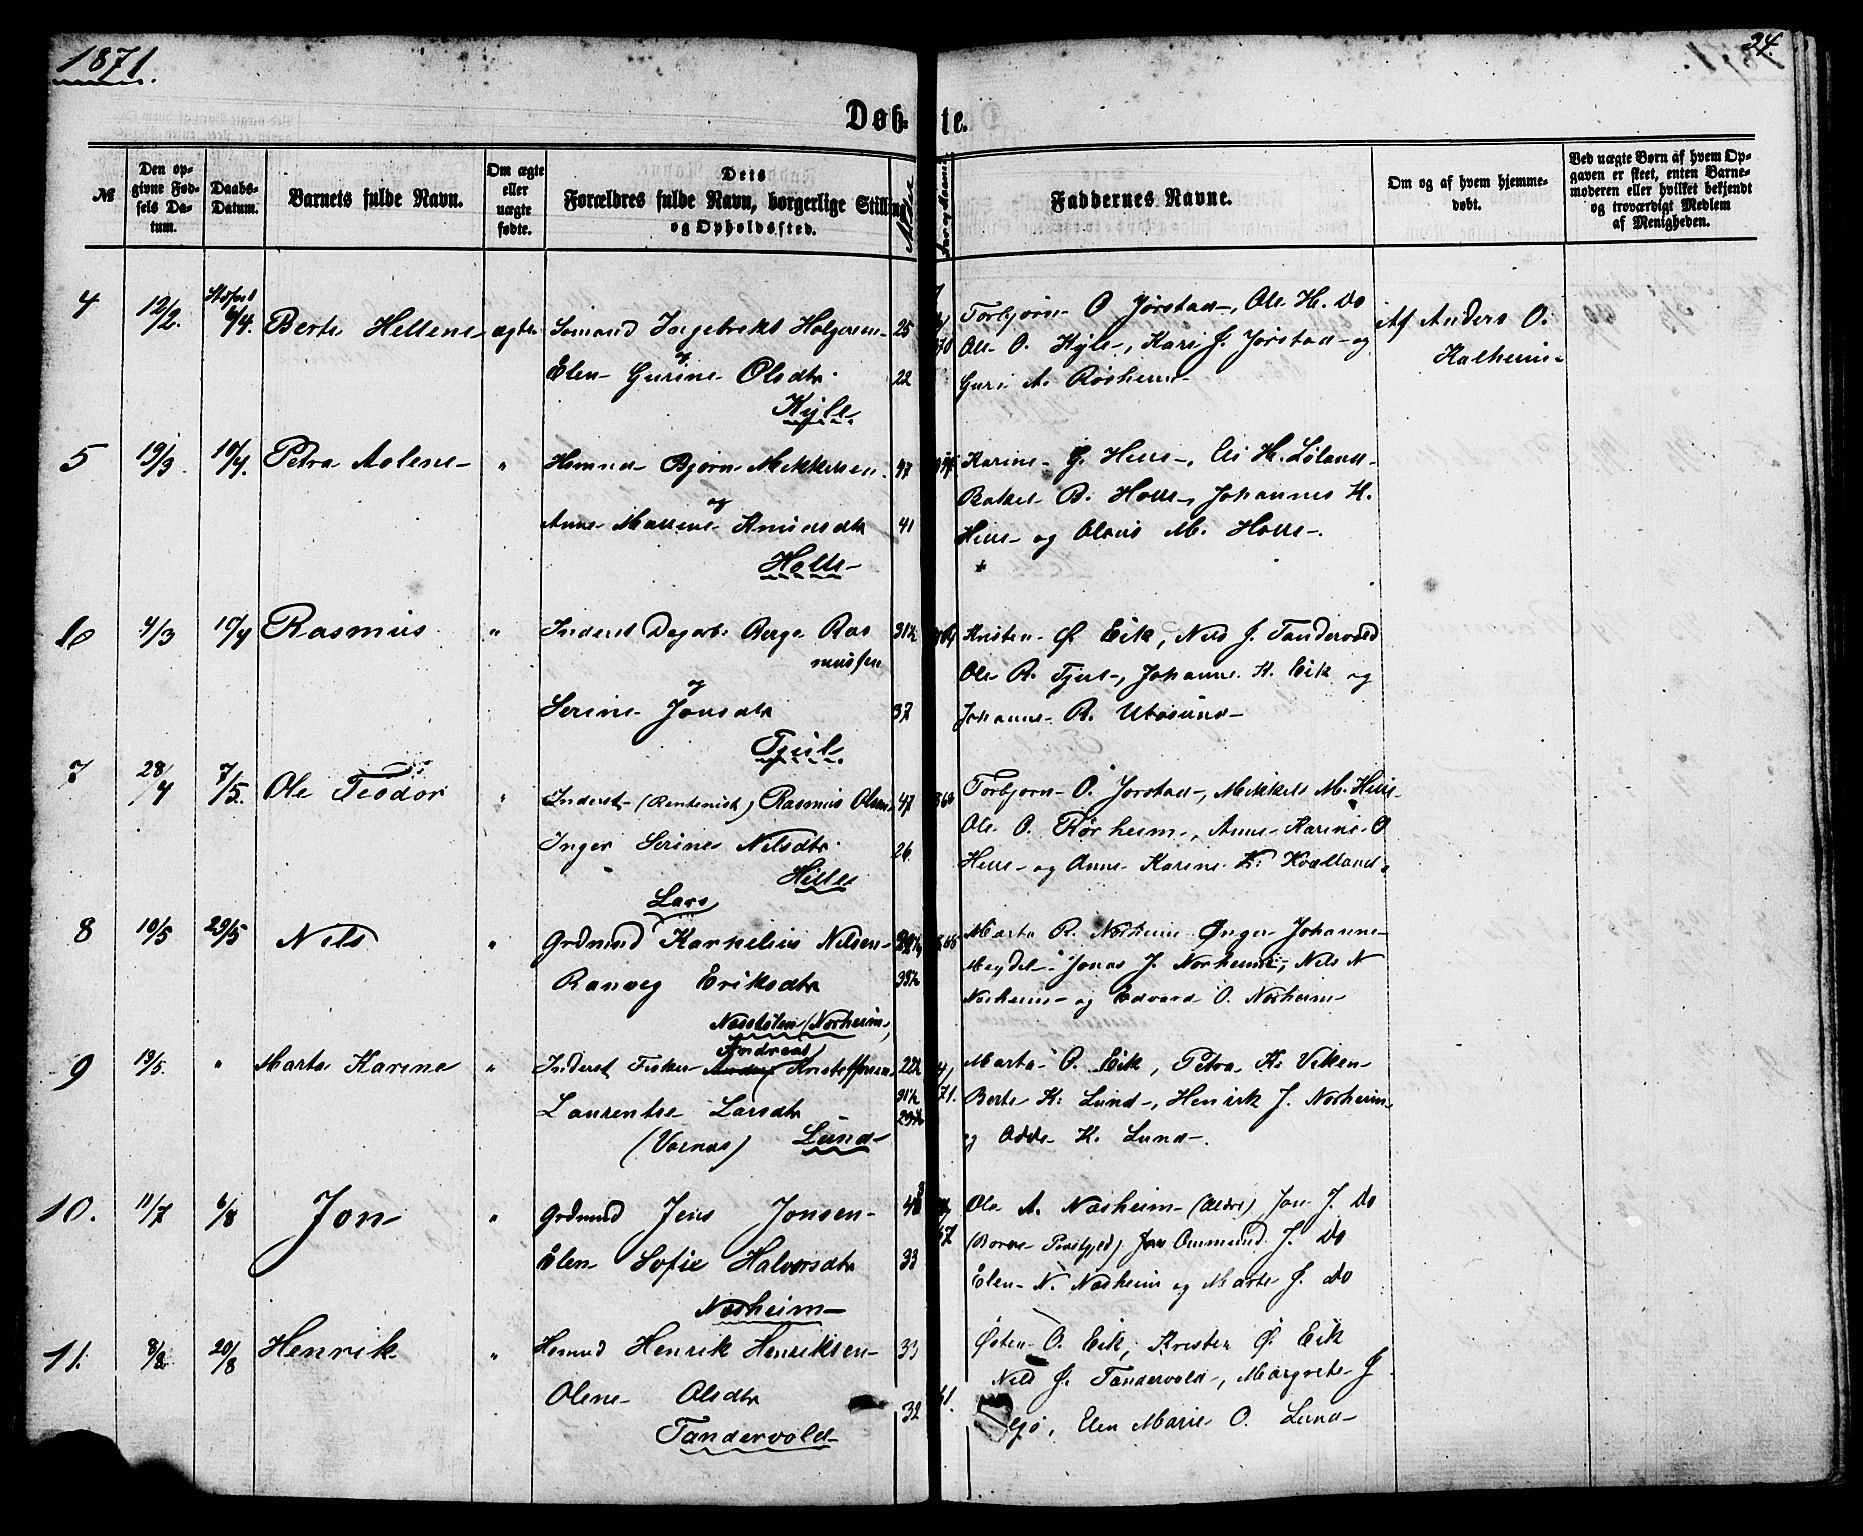 1871.
24.
Døbte.
№
Den opgivne Fødsels Datum.
Daabs-Datum.
Barnets fulde Navn.
Om ægte eller uægte fødte.
Dets Forældres fulde Navn, borgerlige Stilling og Opholdssted.
Alder
Faddernes Navne.
Om og af hvem hjemmedøbt.
Ved uægte Børn af hvem Opgaven er skeet, enten Barnemoderen eller hvilket bekjendt og troværdigt Medlem af Menigheden.
4 12/2. 9/4. Berte Hellene ægte Somand Ingebrekt Holgersen 25
og
Elen Gurine Olsdtr. 22
Kyle
Torbjørn O. Jørstad, Ole H. Do
Ole O. Kyle, Kari J. Jørstad og
Guri A. Røsheim
Af Anders O.
Kalheim
5 19/3 10/4. Petra Aolene " Bjørn Mikkelsen 47
og
Anne Malene Knudsdtr 41
Helle
Karine G. Helle, H. Løland
Rakel B. Helle, Johannes K.
Helle og Olaus M. Helle.
6 4/3 10/4 Rasmus " Inderst Dagarb. Berge Rasmussen 31½
og
Serine Jonsdtr 37
Tjul.
Kristen Ø. Eik, Nils J. Tandervold
Ole R. Tjul, Johanne K. Eik og
Johanne R. Utosund
7 28/4 7/5. Ole Teodor " Inderst (Rentenist) Rasmus Olsen 47
Inger Serine Nilsdtr. 26
Helle
Torbjørn O. Jørstad, Mikkel M. Helle
Ole O. Rørheim, Anne Karine O
Helle og Anne Karine K. Kvalland.
8 10/5 29/5 Nils " Lars
Grdmnd Kornelius Nilsen
Ranveg Eriksdtr
Nordheim,
Marta R. Nordheim Inger Johanne
Meydel. Jonas J. Norheim, Nils N
Nordheim og Edvard O. Nordheim
9 19/5. " Marta Karine " Andreas
Inderst Fisker Kristoffersen
Laurentse Larsdtr
(Vornes) Lund
Marta O. Eik, Petra K. Viken
Berte K. Lund, Henrik J. Nordheim
og Odde K. Lund.
10. 11/7 6/8 Jon " Grdmnd Jens Jonsen 48
Elen Sofie Halvorsdtr 33
Nordheim
Ole A. Nordheim (ældre) Jon J. Do
Ommund J. Do
Elen N. Nordheim og Marte J. Do
11. 8/8 20/8 Henrik " Henrik Henriksen 33
Olene Olsdtr 32
Tandervold
Østen O. Eik, Kristen Ø. Eik
Nils J. Tandervold, Margrete J
Elen Marie O. Lund